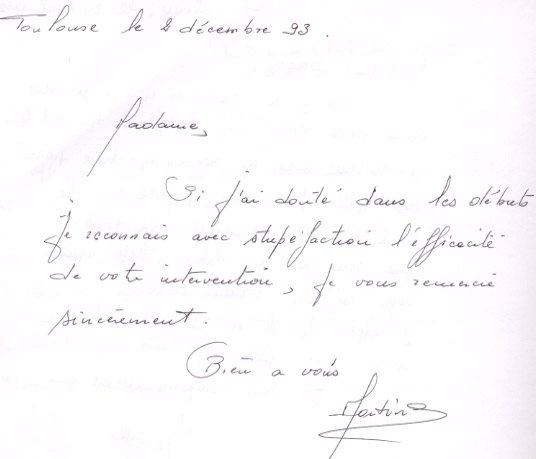 Toulouse le 2 décembre 93.
Madame,
Si j'ai douté dans les débuts
je reconnais avec stupéfaction l'éfficacité
de votre intervention, je vous remercie
sincèrement.
Bien a vous
Martine